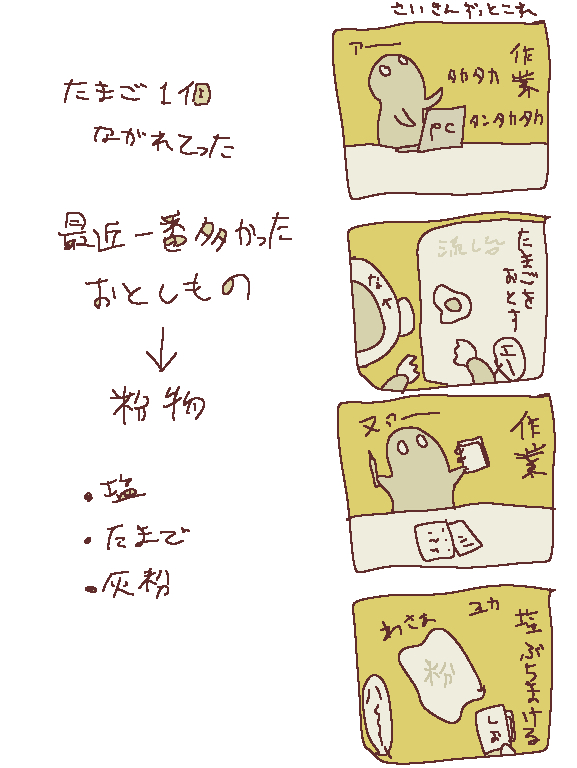 さいきんやっとこれ
作業
アー
タカタカ
タンカタカタカ
PC
たまご1個
ながれてった
最近一番多かった
おとしもの
↓
粉物
・塩
・たまで
・灰粉
たまごを
おとす
流し台
なべ
エー
作業
ヌァー
塩ぶちまける
ユカ
わさぁ
粉
しお